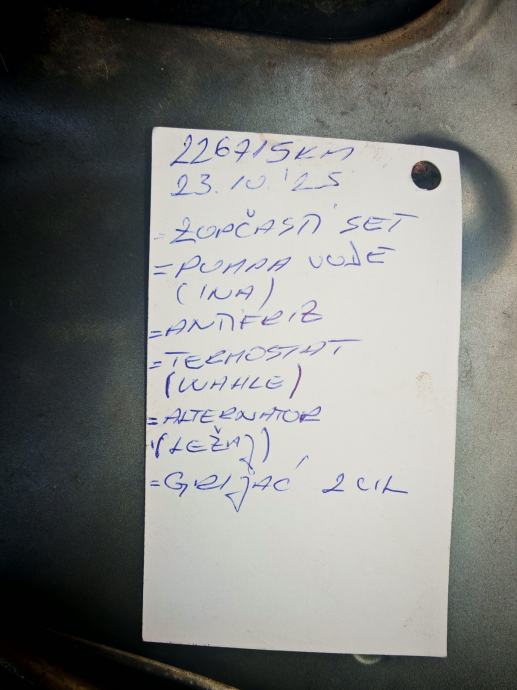 226715KM
23.10.'25
=ZUPČASTI SET
=PUMPA VODE
(INA)
=ANTIFRIZ
=TERMOSTAT
(WAHLE)
=ALTERNATOR
(LEŽAJ)
=GRIJAČ 2 CIL